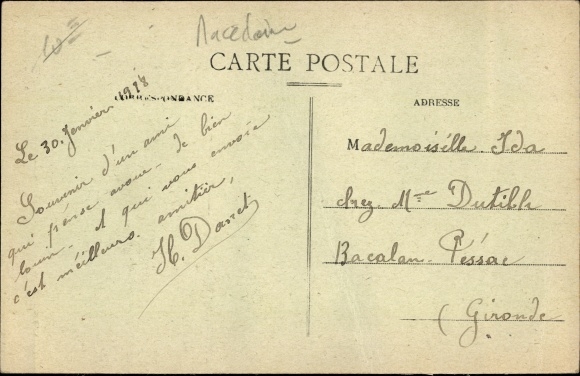 Macedoine
CARTE POSTALE
CORRESPONDANCE
Le 30. Janvier 1918
Souvenir d'un ami
qui panse avous. de bien
louin. et qui vous envoie
c'est méilleurs. amitier,
H. Darret
ADRESSE
Mademoisélle. Ida
chez Mme Dutilh
Bacalan. Péssac
(Gironde